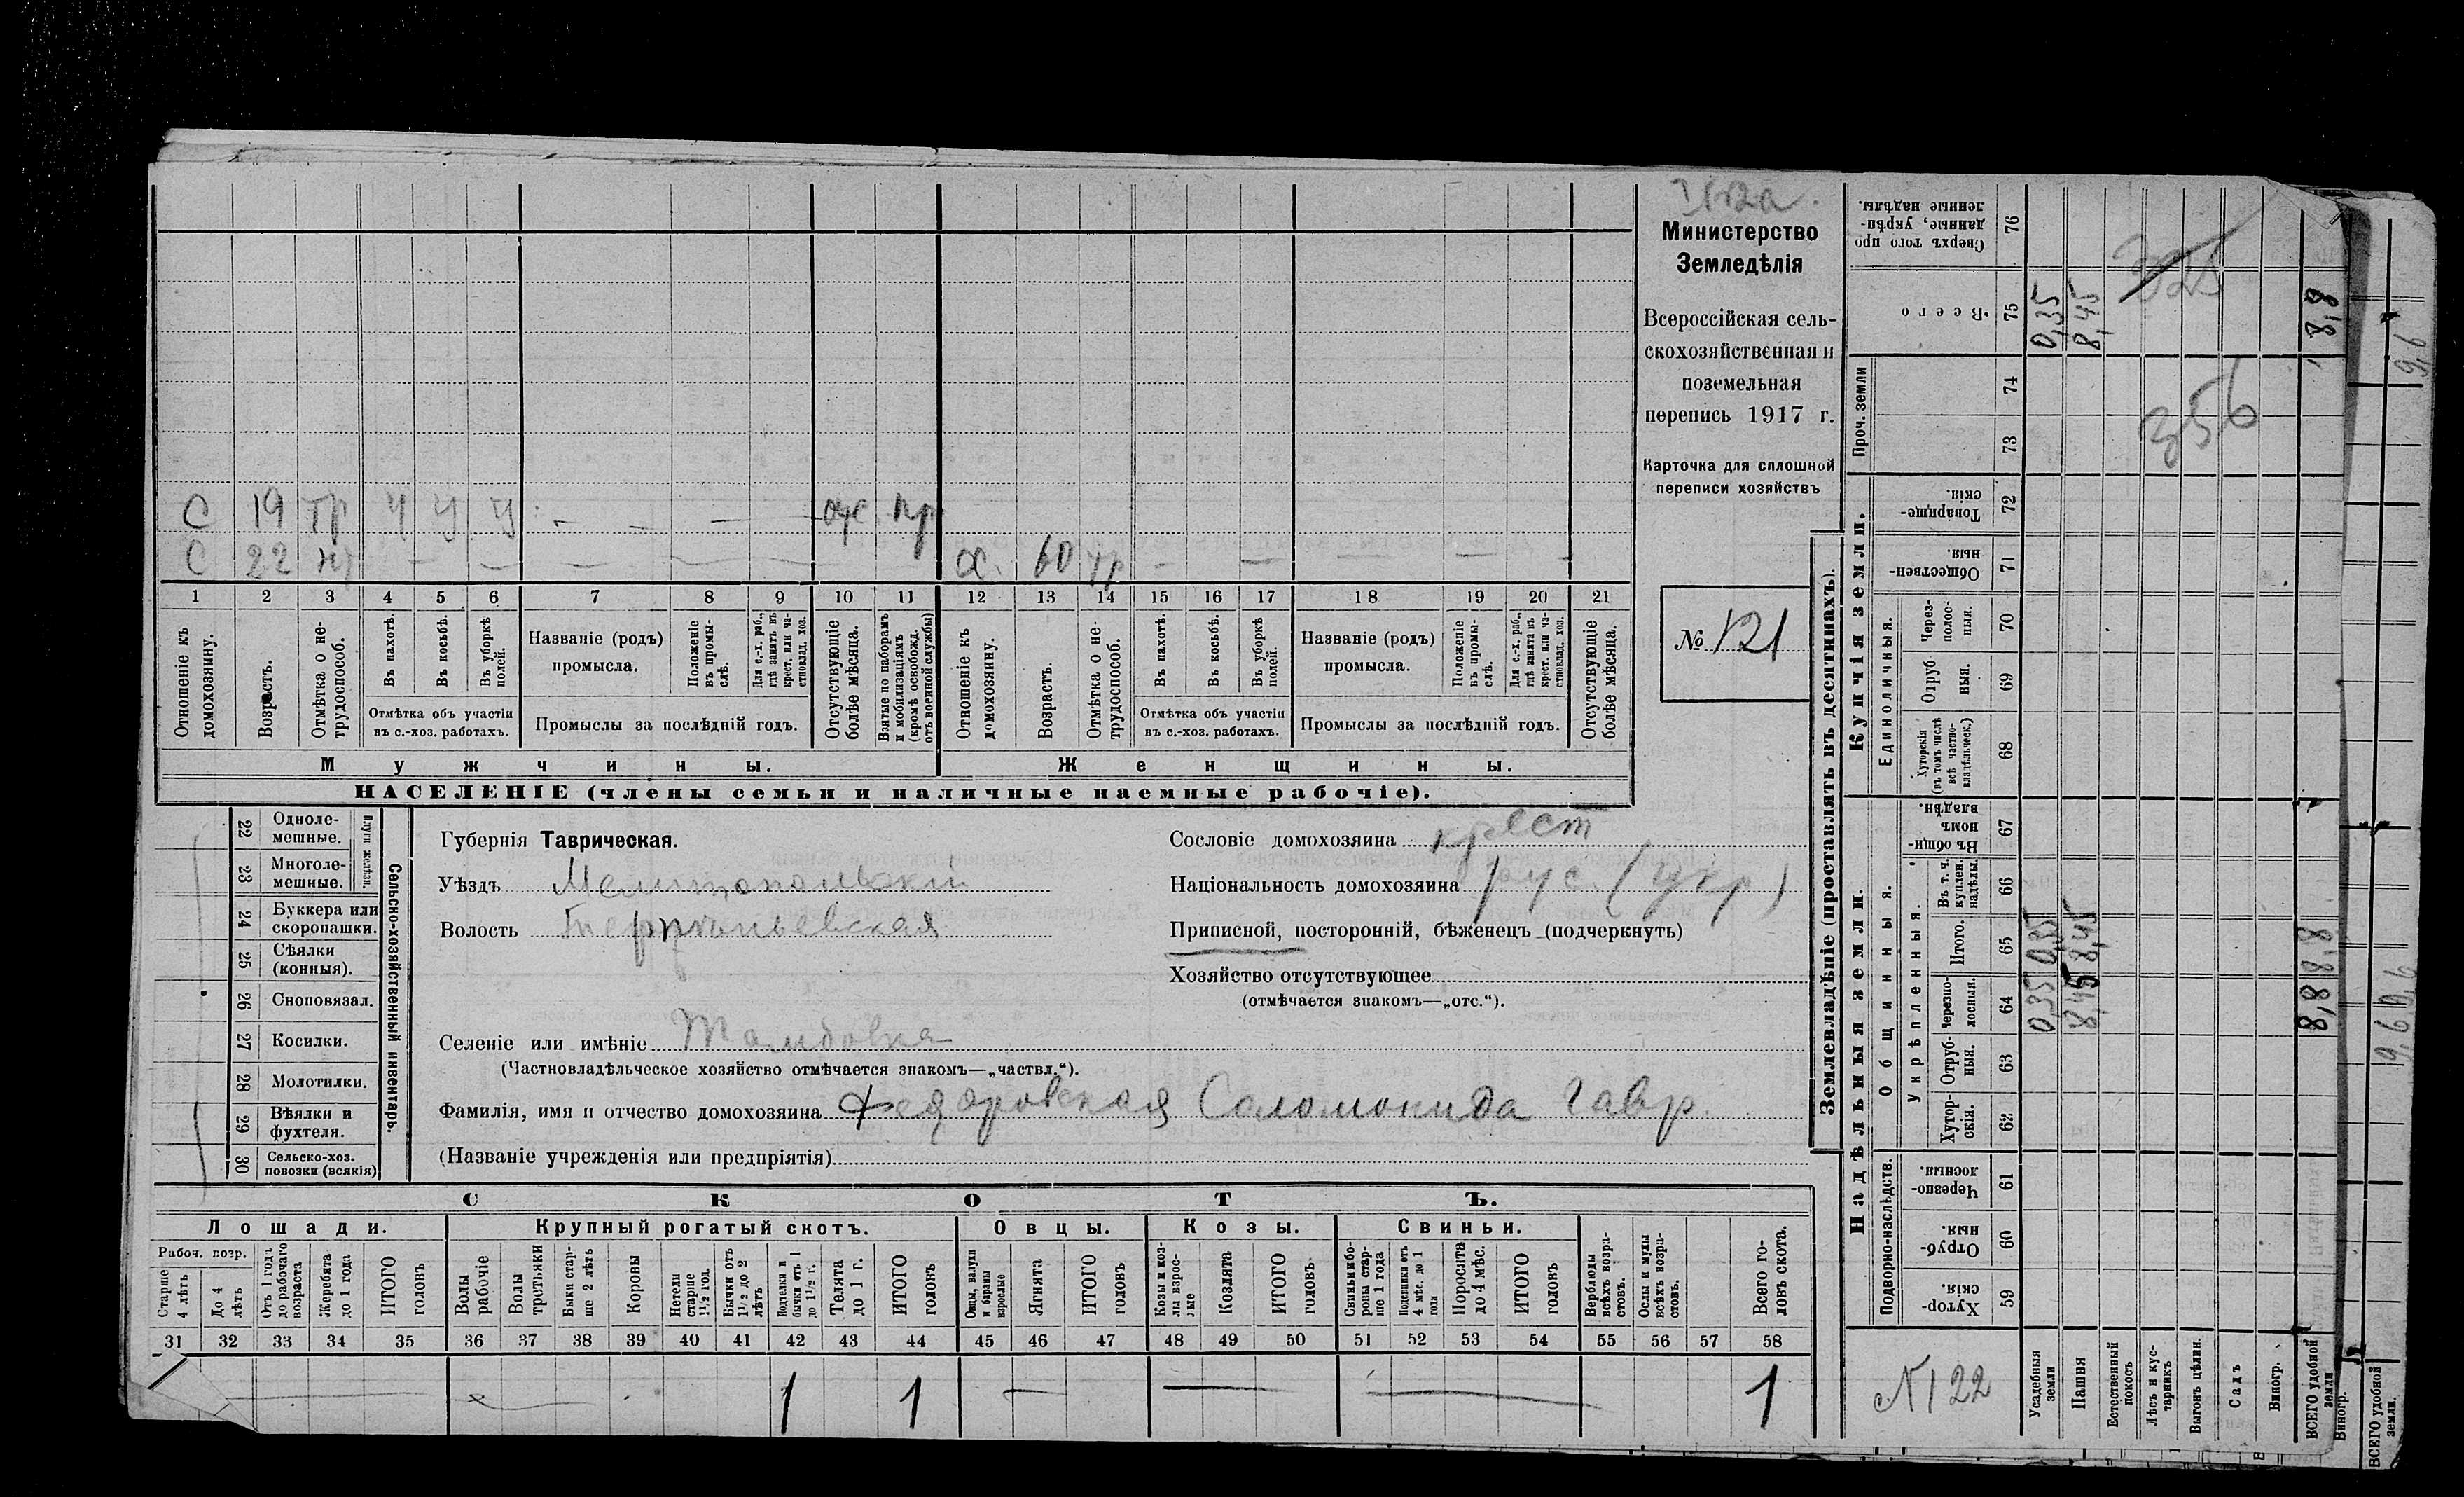 Министерство
Земледѣлія
Всероссійская сель-
скохозяйственная и
поземельная
перепись 1917 г.
Карточка для сплошной
переписи хозяйствъ
№ 121
С 19 тр У У У - - - - отс. пр
С 22 нр - - - - - х. 60 тр - - - - -
1 2 3 4 5 6 7 8 9 10 11 12 13 14 15 16 17 18 19 20 21
Отношеніе къ домохозяину.
Возрастъ.
Отмѣтка о не-трудоспособ.
Въ пахотѣ.
Въ косьбѣ.
Въ уборкѣ полей.
Отмѣтка объ участіи
въ с.-хоз. работахъ.
Названіе (родъ)
промысла.
Положеніе въ промы-слѣ.
Для с.-х. раб., гдѣ занятъ въ крест. или ча-стновлад. хоз.
Промыслы за послѣдній годъ.
Отсутствующіе болѣе мѣсяца.
Взятые по наборамъ и мобилизаціямъ (кромѣ освобожд. отъ военной службы)
Отношеніе къ домохозяину.
Возрастъ.
Отмѣтка о не-трудоспособ.
Въ пахотѣ.
Въ косьбѣ.
Въ уборкѣ полей.
Отмѣтка объ участіи
въ с.-хоз. работахъ.
Названіе (родъ)
промысла.
Положеніе въ промы-слѣ.
Для с.-х. раб., гдѣ занята въ крест. или ча-стновлад. хоз.
Промыслы за послѣдній годъ.
Отсутствующіе болѣе мѣсяца.
Мужчины. Женщины.
НАСЕЛЕНІЕ (члены семьи и наличные наемные рабочіе).
22 Одноле-мешные.
23 Многоле-мешные.
Плуги желѣзн.
24 Буккера или скоропашки.
25 Сѣялки (конныя).
26 Сноповязал.
27 Косилки.
28 Молотилки.
29 Вѣялки и фухтеля.
30 Сельско-хоз. повозки (всякія)
Сельско-хозяйственный инвентарь.
Губернія Таврическая.
Уѣздъ Мелитопольскій
Волость Терпѣньевская
Сословіе домохозяина крест
Національность домохозяина рус. (укр)
Приписной, посторонній, бѣженецъ (подчеркнуть)
Хозяйство отсутствующее
(отмѣчается знакомъ—„отс.“).
Селеніе или имѣніе Тамбовка
(Частновладѣльческое хозяйство отмѣчается знакомъ—„частвл.“).
Фамилія, имя и отчество домохозяина Федоровская Соломонида Гавр.
(Названіе учрежденія или предпріятія)
СКОТЪ.
Лошади. Крупный рогатый скотъ. Овцы. Козы. Свиньи.
Рабоч. возр.
Старше 4 лѣтъ
До 4 лѣтъ
Отъ 1 года до рабочаго возраста
Жеребята до 1 года
ИТОГО головъ
Волы рабочіе
Волы третьяки
Быки стар-ше 2 лѣтъ
Коровы
Нетели старше 1½ год.
Бычки отъ 1½ до 2 лѣтъ
Нетелки и бычки отъ 1 до 1½ г.
Телята до 1 г.
ИТОГО головъ
Овцы, валухи и бараны взрослые
Ягнята
ИТОГО головъ
Козы и коз-лы взрос-лые
Козлята
ИТОГО головъ
Свиньи и бо-ровы стар-ше 1 года
Подсвинки отъ 4 мѣс. до 1 года
Поросята до 4 мѣс.
ИТОГО головъ
Верблюды всѣхъ возра-стовъ.
Ослы и мулы всѣхъ возра-стовъ.
Всего го-ловъ скота.
31 32 33 34 35 36 37 38 39 40 41 42 43 44 45 46 47 48 49 50 51 52 53 54 55 56 57 58
1 1 - - - 1
Землевладѣніе (проставлять въ десятинахъ).
Надѣльныя земли. Купчія земли. Проч. земли
Подворно-наслѣдств.
Общинныя.
Укрѣпленныя.
Единоличныя.
59 Хутор-скія
60 Отруб-ныя.
61 Черезпо-лосныя.
62 Хутор-скія.
63 Отруб-ныя.
64 Черезпо-лосныя.
65 Итого.
66 Въ т. ч. куплен. надѣлы.
67 Въ общи-номъ владѣн.
68 Хуторскія (въ томъ числѣ всѣ частно-владѣльческ.)
69 Отруб ныя.
70 Через-полос-ныя.
71 Обществен-ныя.
72 Товарище-скія.
73
74
75 Всего
76 Сверхъ того про данные, укрѣп-ленные надѣлы.
№ 122
Усадебныя земли 0,35 0,35 0,35
Пашня 8,45 8,45 8,45
Естественный покосъ
Лѣсъ и кус-тарникъ
Выгонъ цѣлин.
Садъ
Виногр.
ВСЕГО удобной земли 8,8 8,8 8,8
325
356
Виногр.
ВСЕГО удобной земли. 9,6 9,6 9,6